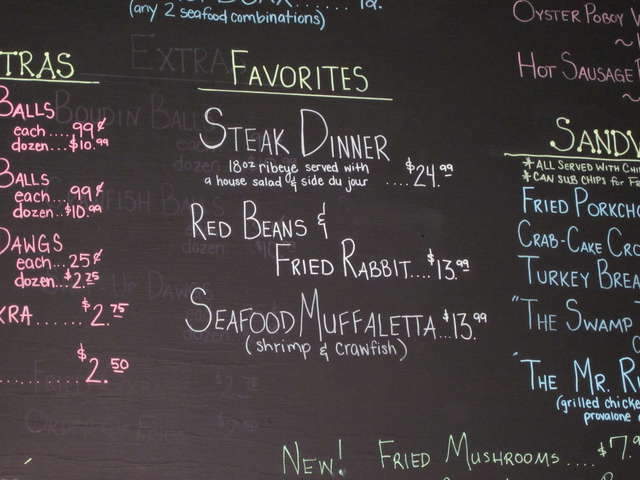 (any 2 seafood combinations)
TRAS
BALLS
each....99¢
dozen...$10.99
BALLS
each....99¢
dozen..$10.99
DAWGS
each...25¢
dozen..$2.75
KRA......$2.75
..........$2.50
FAVORITES
STEAK DINNER
18oz ribeye served with
a house salad & side du jour ....$24.99
RED BEANS &
FRIED RABBIT....$13.99
SEAFOOD MUFFALETTA...$13.99
(shrimp & crawfish)
NEW! FRIED MUSHROOMS ....$7.9
OYSTER POBOY
HOT SAUSAGE
SANDW
*ALL SERVED WITH CHI
*CAN SUB CHIPS for F
FRIED PORKCHO
CRAB-CAKE CRO
TURKEY BREA
"THE SWAMP
"THE MR. R
(grilled chicke
provalone